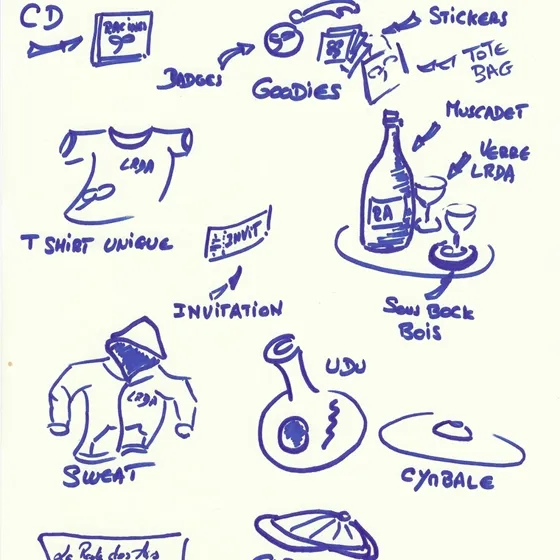 CD
RACINES
BADGES
GOODIES
STICKERS
TOTE
BAG
MUSCADET
VERRE
LRDA
LRDA
T SHIRT UNIQUE
INVIT
INVITATION
RA
SOUS BOCK
BOIS
LRDA
SWEAT
UDU
CYMBALE